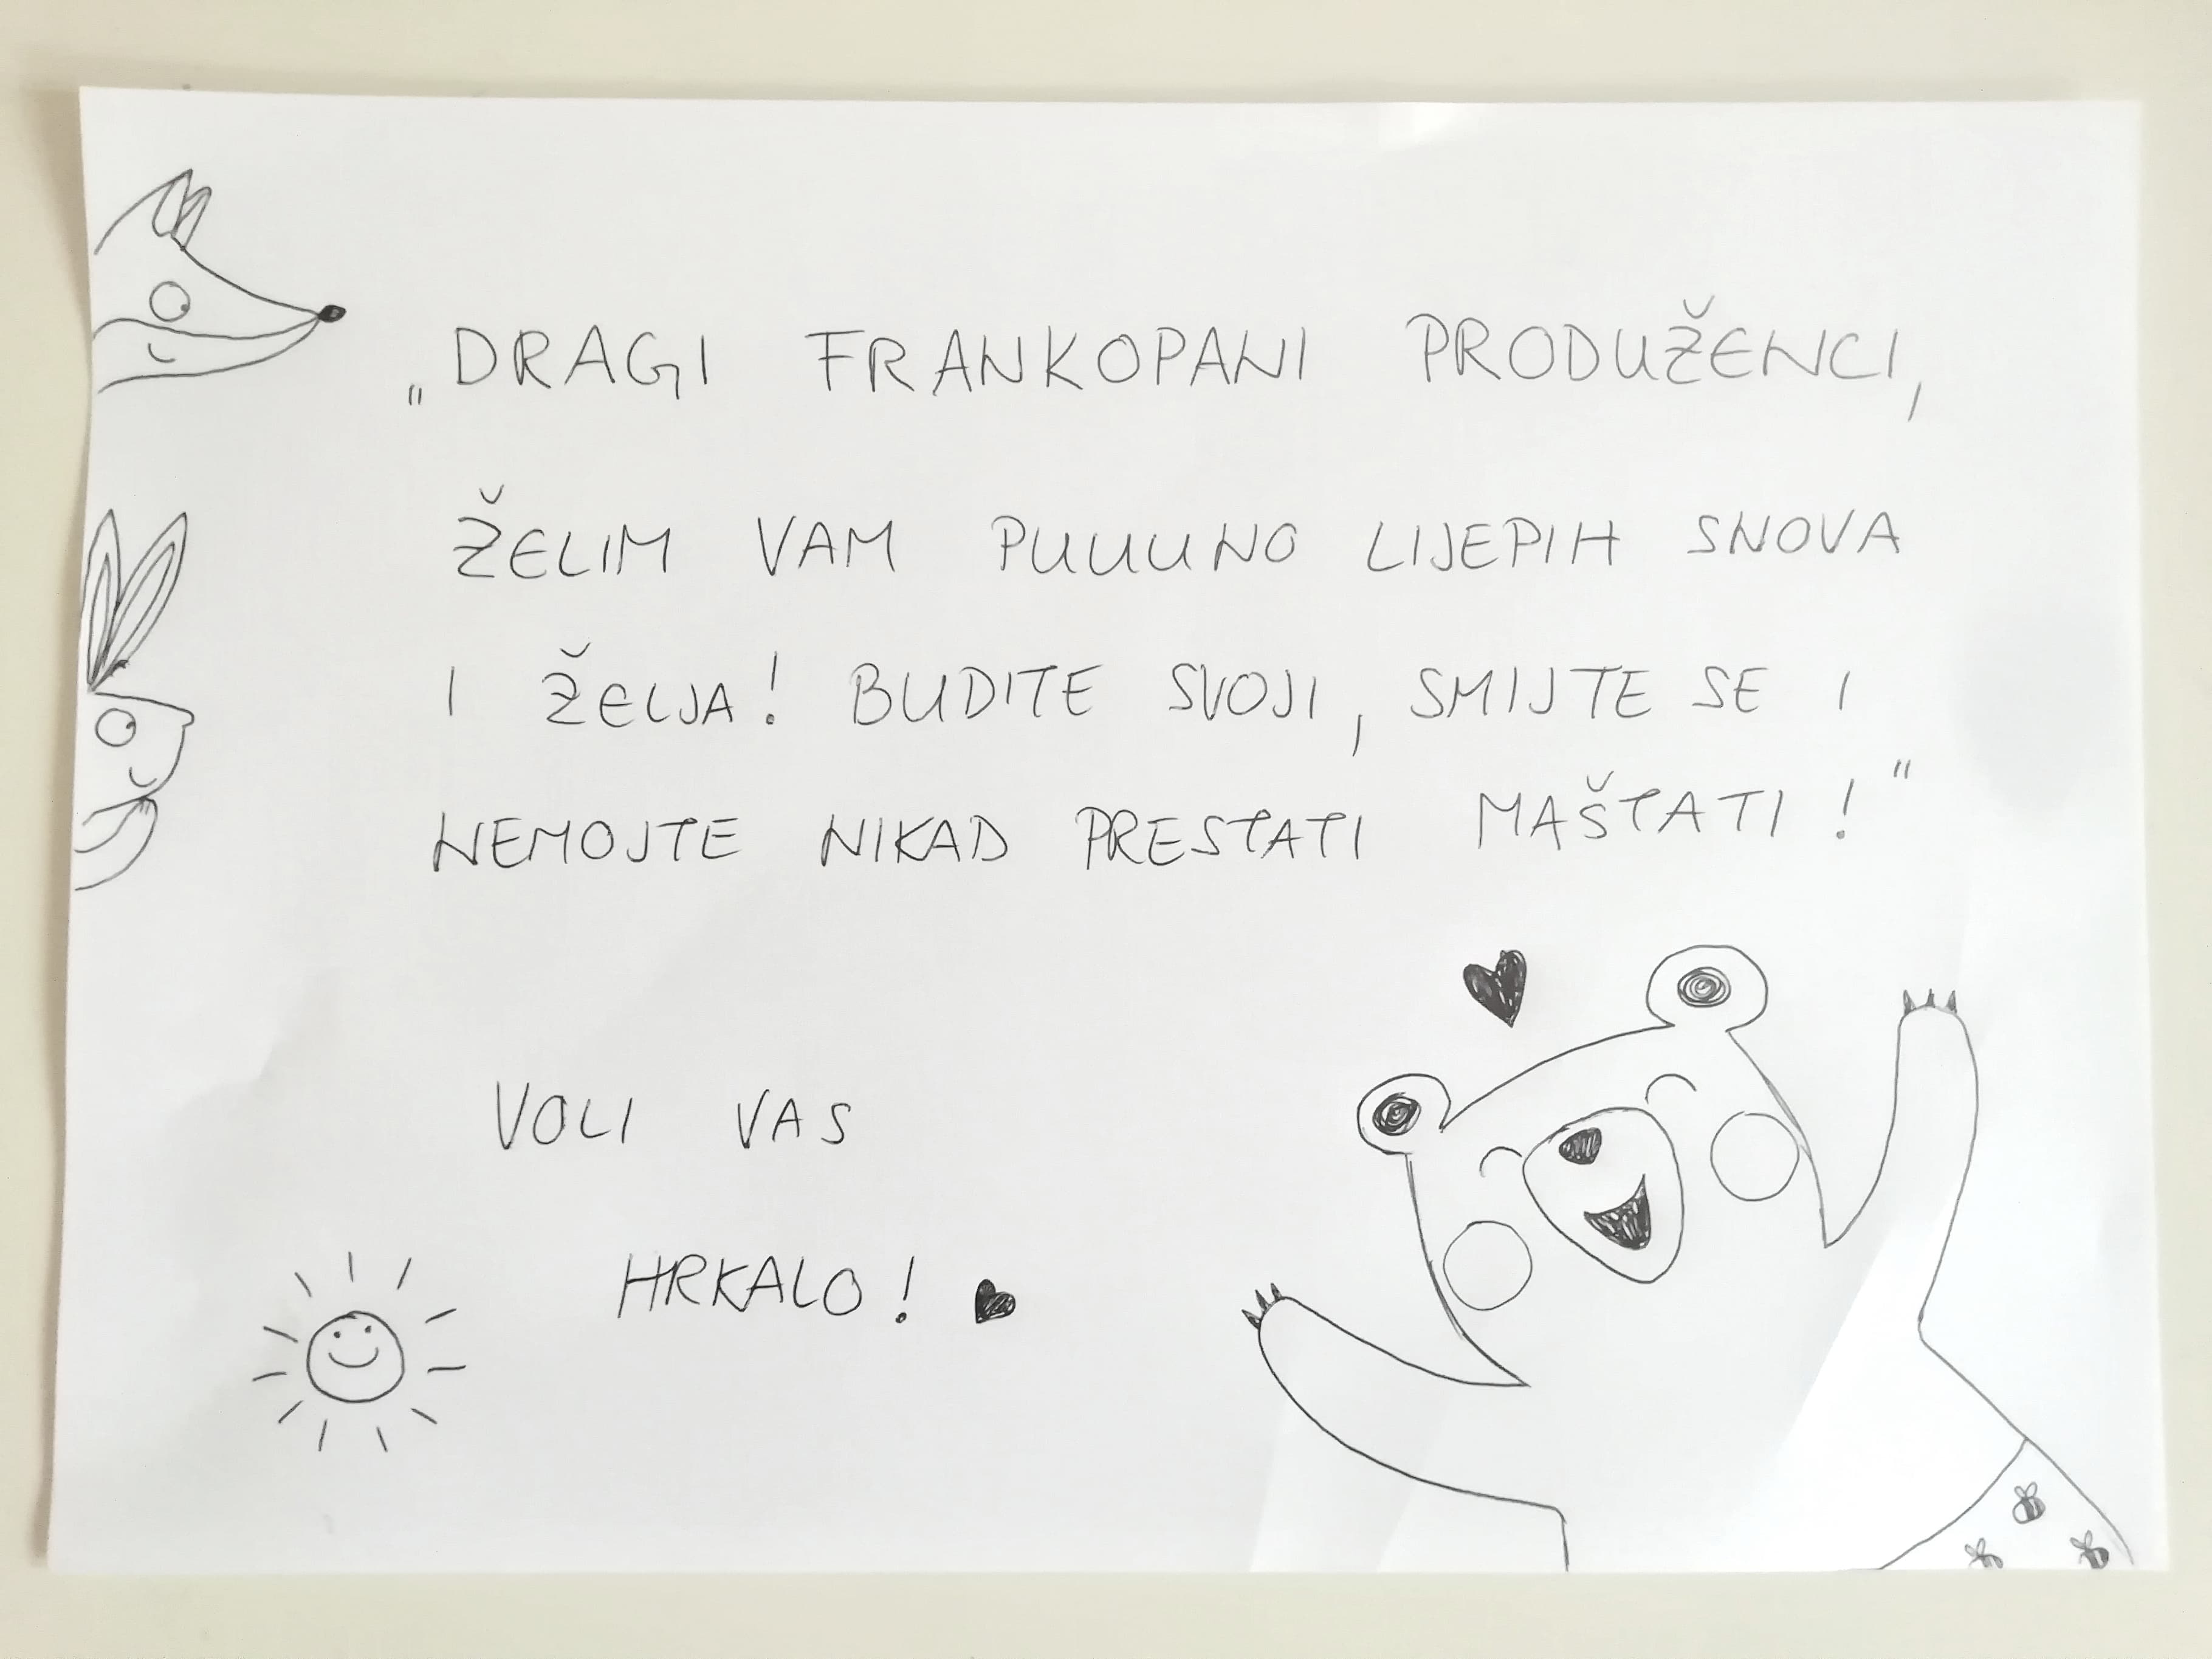 „DRAGI FRANKOPANI PRODUŽENCI,
ŽELIM VAM PUUUNO LIJEPIH SNOVA
I ŽELJA! BUDITE SVOJI, SMIJTE SE I
NEMOJTE NIKAD PRESTATI MAŠTATI!"
VOLI VAS
HRKALO! ♥